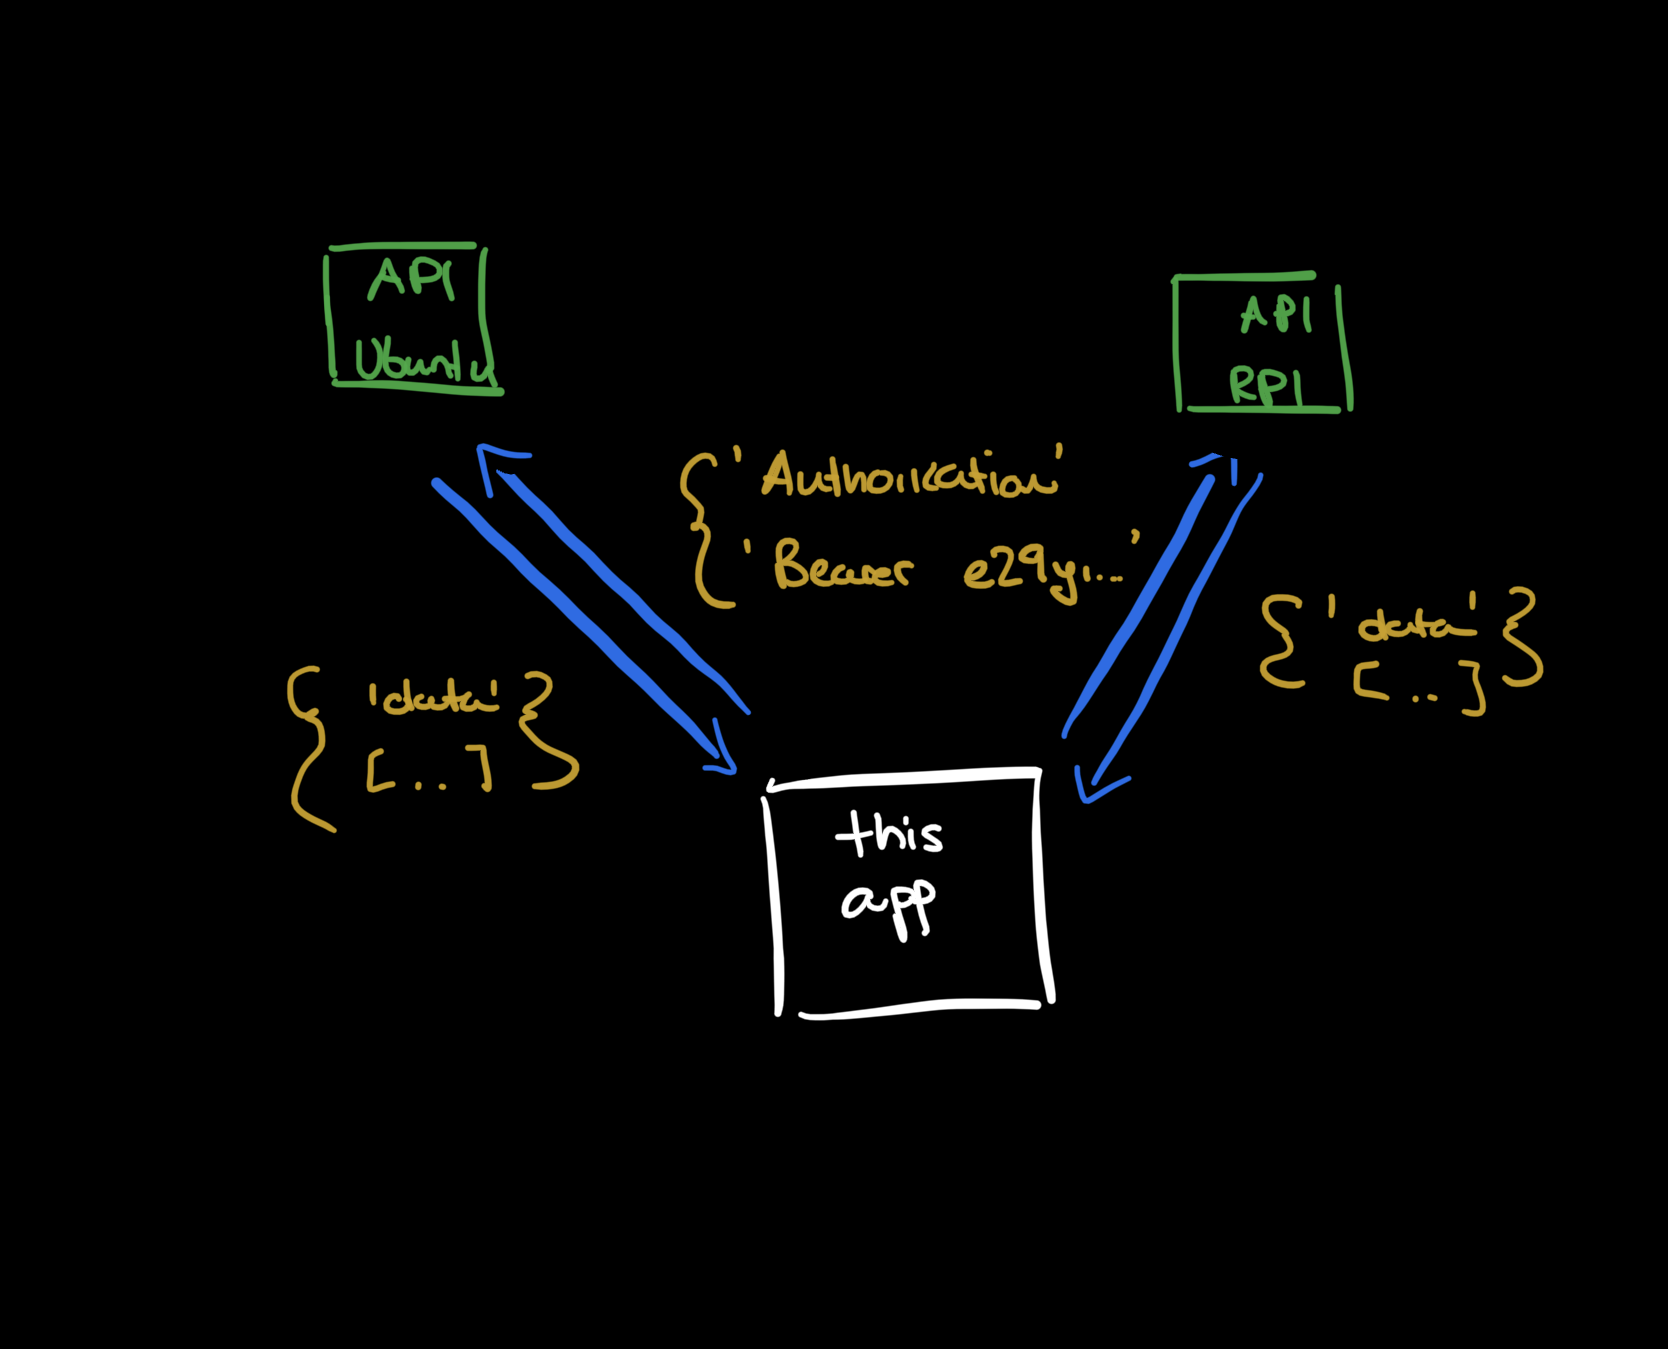 API
Ubuntu
API
RPI
{ 'Authorization'
'Bearer e29yi...'
{ 'data' }
[..]
{ 'data' }
[..]
this
app